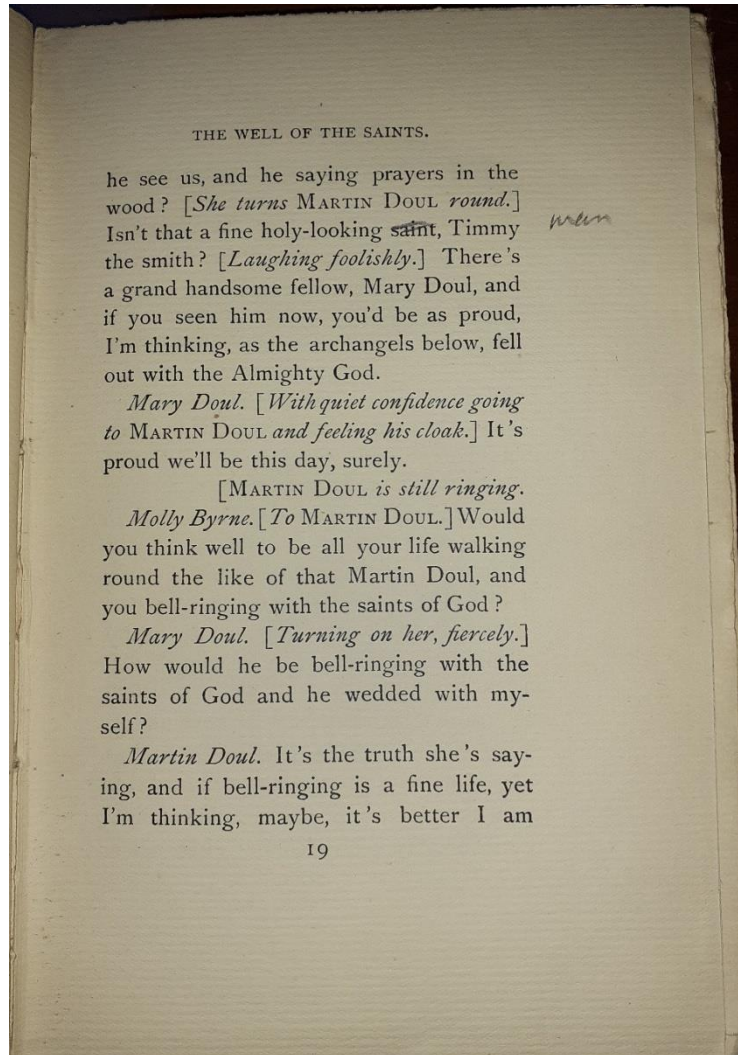 THE WELL OF THE SAINTS.
he see us, and he saying prayers in the
wood? [She turns MARTIN DOUL round.]
Isn't that a fine holy-looking saint, Timmy man
the smith? [Laughing foolishly.] There's
a grand handsome fellow, Mary Doul, and
if you seen him now, you'd be as proud,
I'm thinking, as the archangels below, fell
out with the Almighty God.
Mary Doul. [With quiet confidence going
to MARTIN DOUL and feeling his cloak.] It's
proud we'll be this day, surely.
[MARTIN DOUL is still ringing.
Molly Byrne. [To MARTIN DOUL.] Would
you think well to be all your life walking
round the like of that Martin Doul, and
you bell-ringing with the saints of God?
Mary Doul. [Turning on her, fiercely.]
How would he be bell-ringing with the
saints of God and he wedded with my-
self?
Martin Doul. It's the truth she's say-
ing, and if bell-ringing is a fine life, yet
I'm thinking, maybe, it's better I am
19